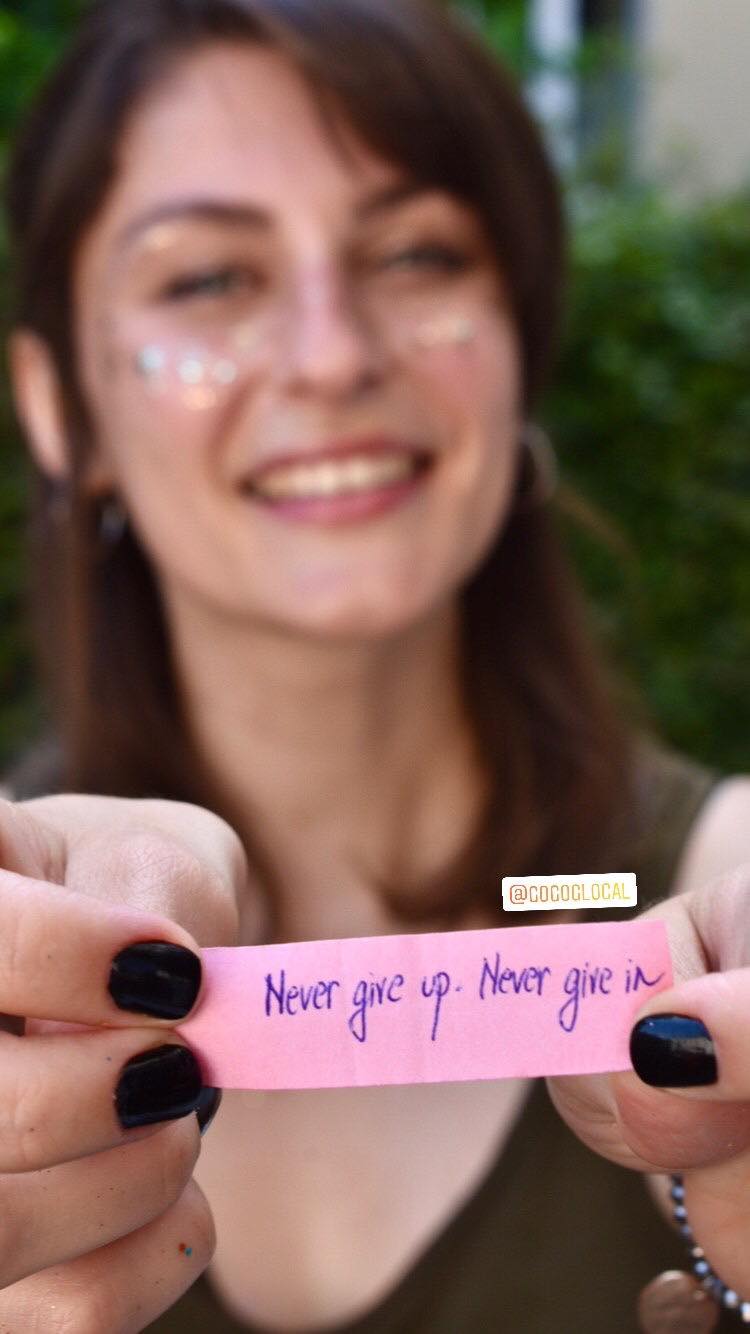 @COCOGLOCAL
Never give up. Never give in